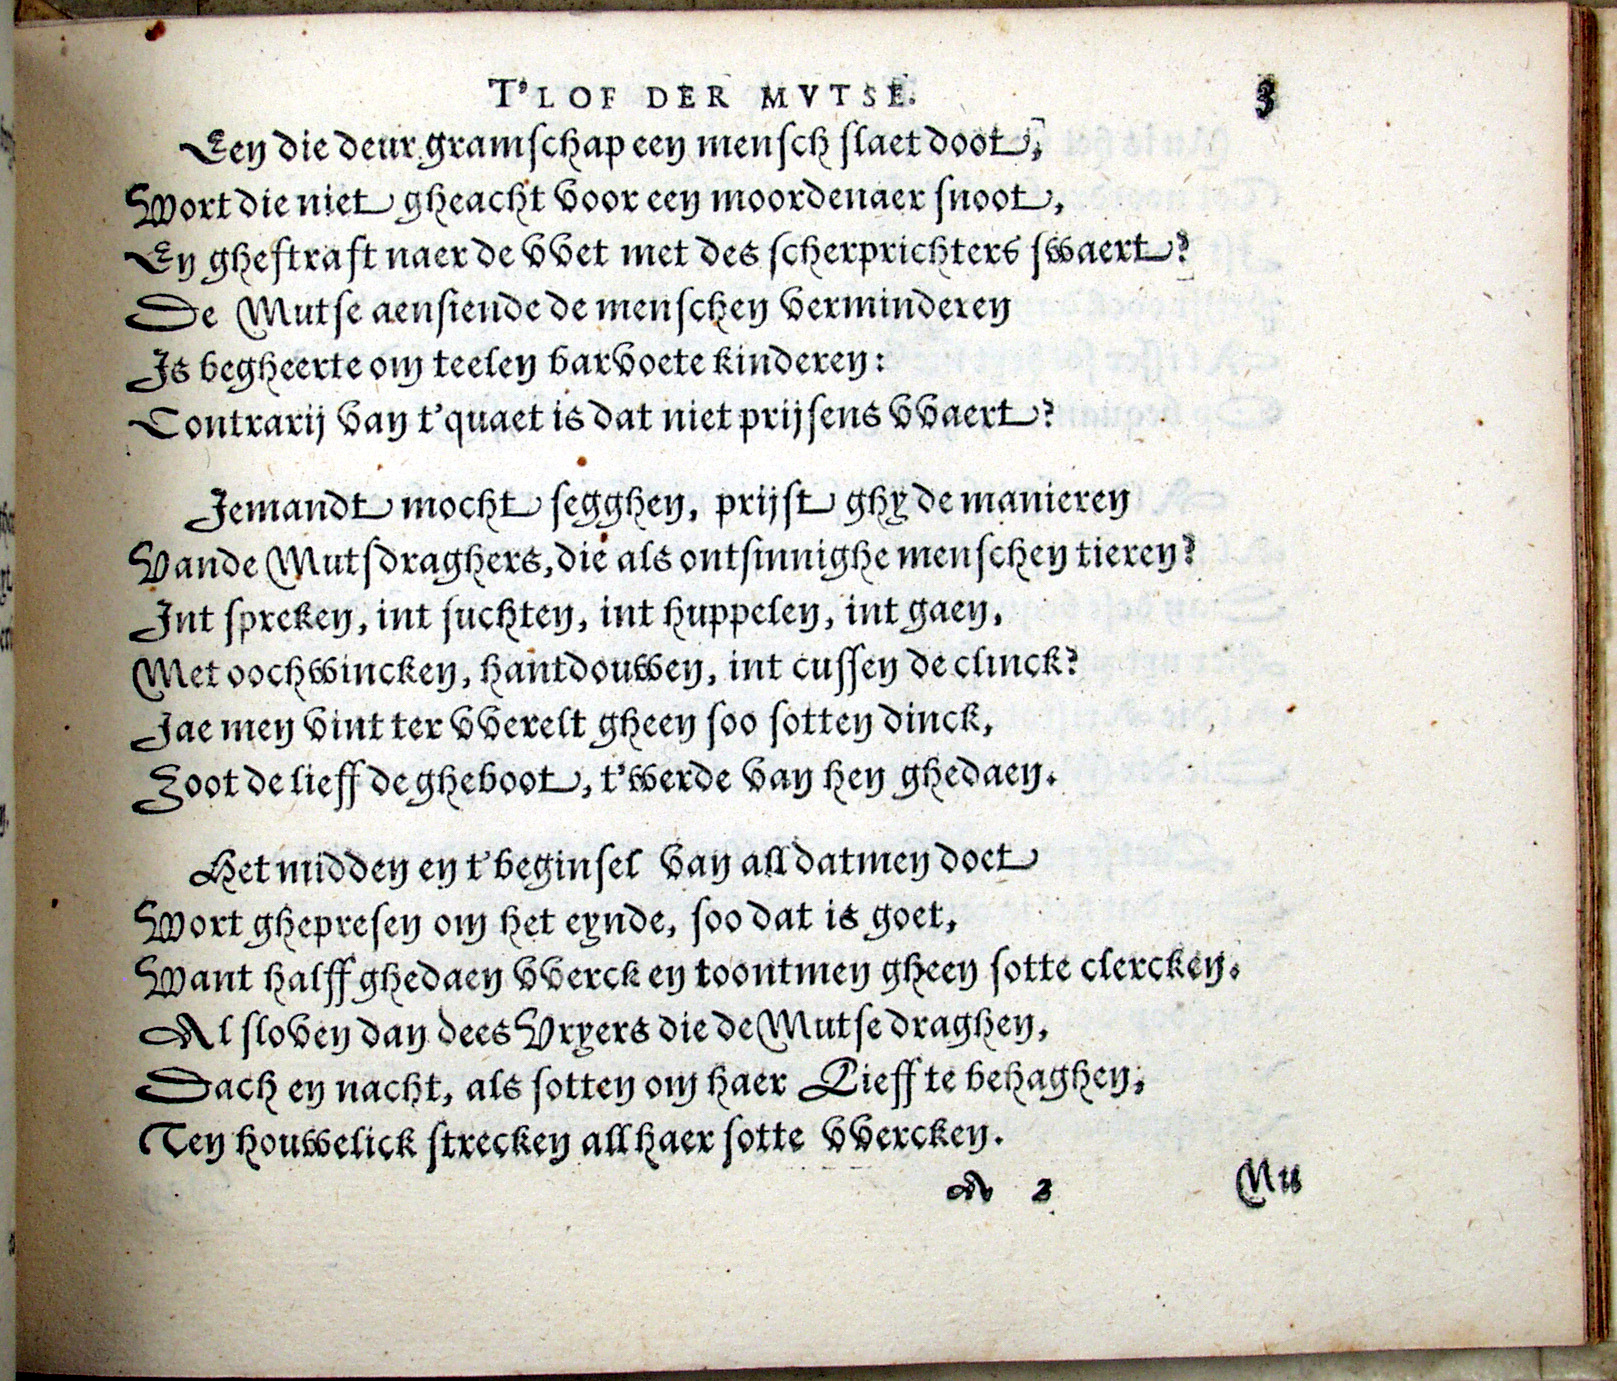 T'LOF DER MVTSE. 3
Een die deur gramschap een mensch slaet doot,
Wort die niet gheacht voor een moordenaer snoot,
En ghestraft naer de vvet met des scherprichters swaert?
De Mutse aensiende de menschen verminderen
Is begheerte om teelen barvoete kinderen:
Contrarij van t'quaet is dat niet prijsens vvaert?
Iemandt mocht segghen, prijst ghy de manieren
Vande Mutsdraghers, die als ontsinnighe menschen tieren?
Int spreken, int suchten, int huppelen, int gaen,
Met oochwincken, hantdouwen, int cussen de clinck?
Iae men vint ter vverelt gheen soo sotten dinck,
Zoot de lieffde gheboot, t'werde van hen ghedaen.
Het midden en t'beginsel van all datmen doet
Wort ghepresen om het eynde, soo dat is goet,
Want halff ghedaen vverck en toontmen gheen sotte clercken.
Al sloven dan dees Vryers die de Mutse draghen,
Dach en nacht, als sotten om haer Lieff te behaghen,
Ten houwelick strecken all haer sotte vvercken.
A 3 Nu